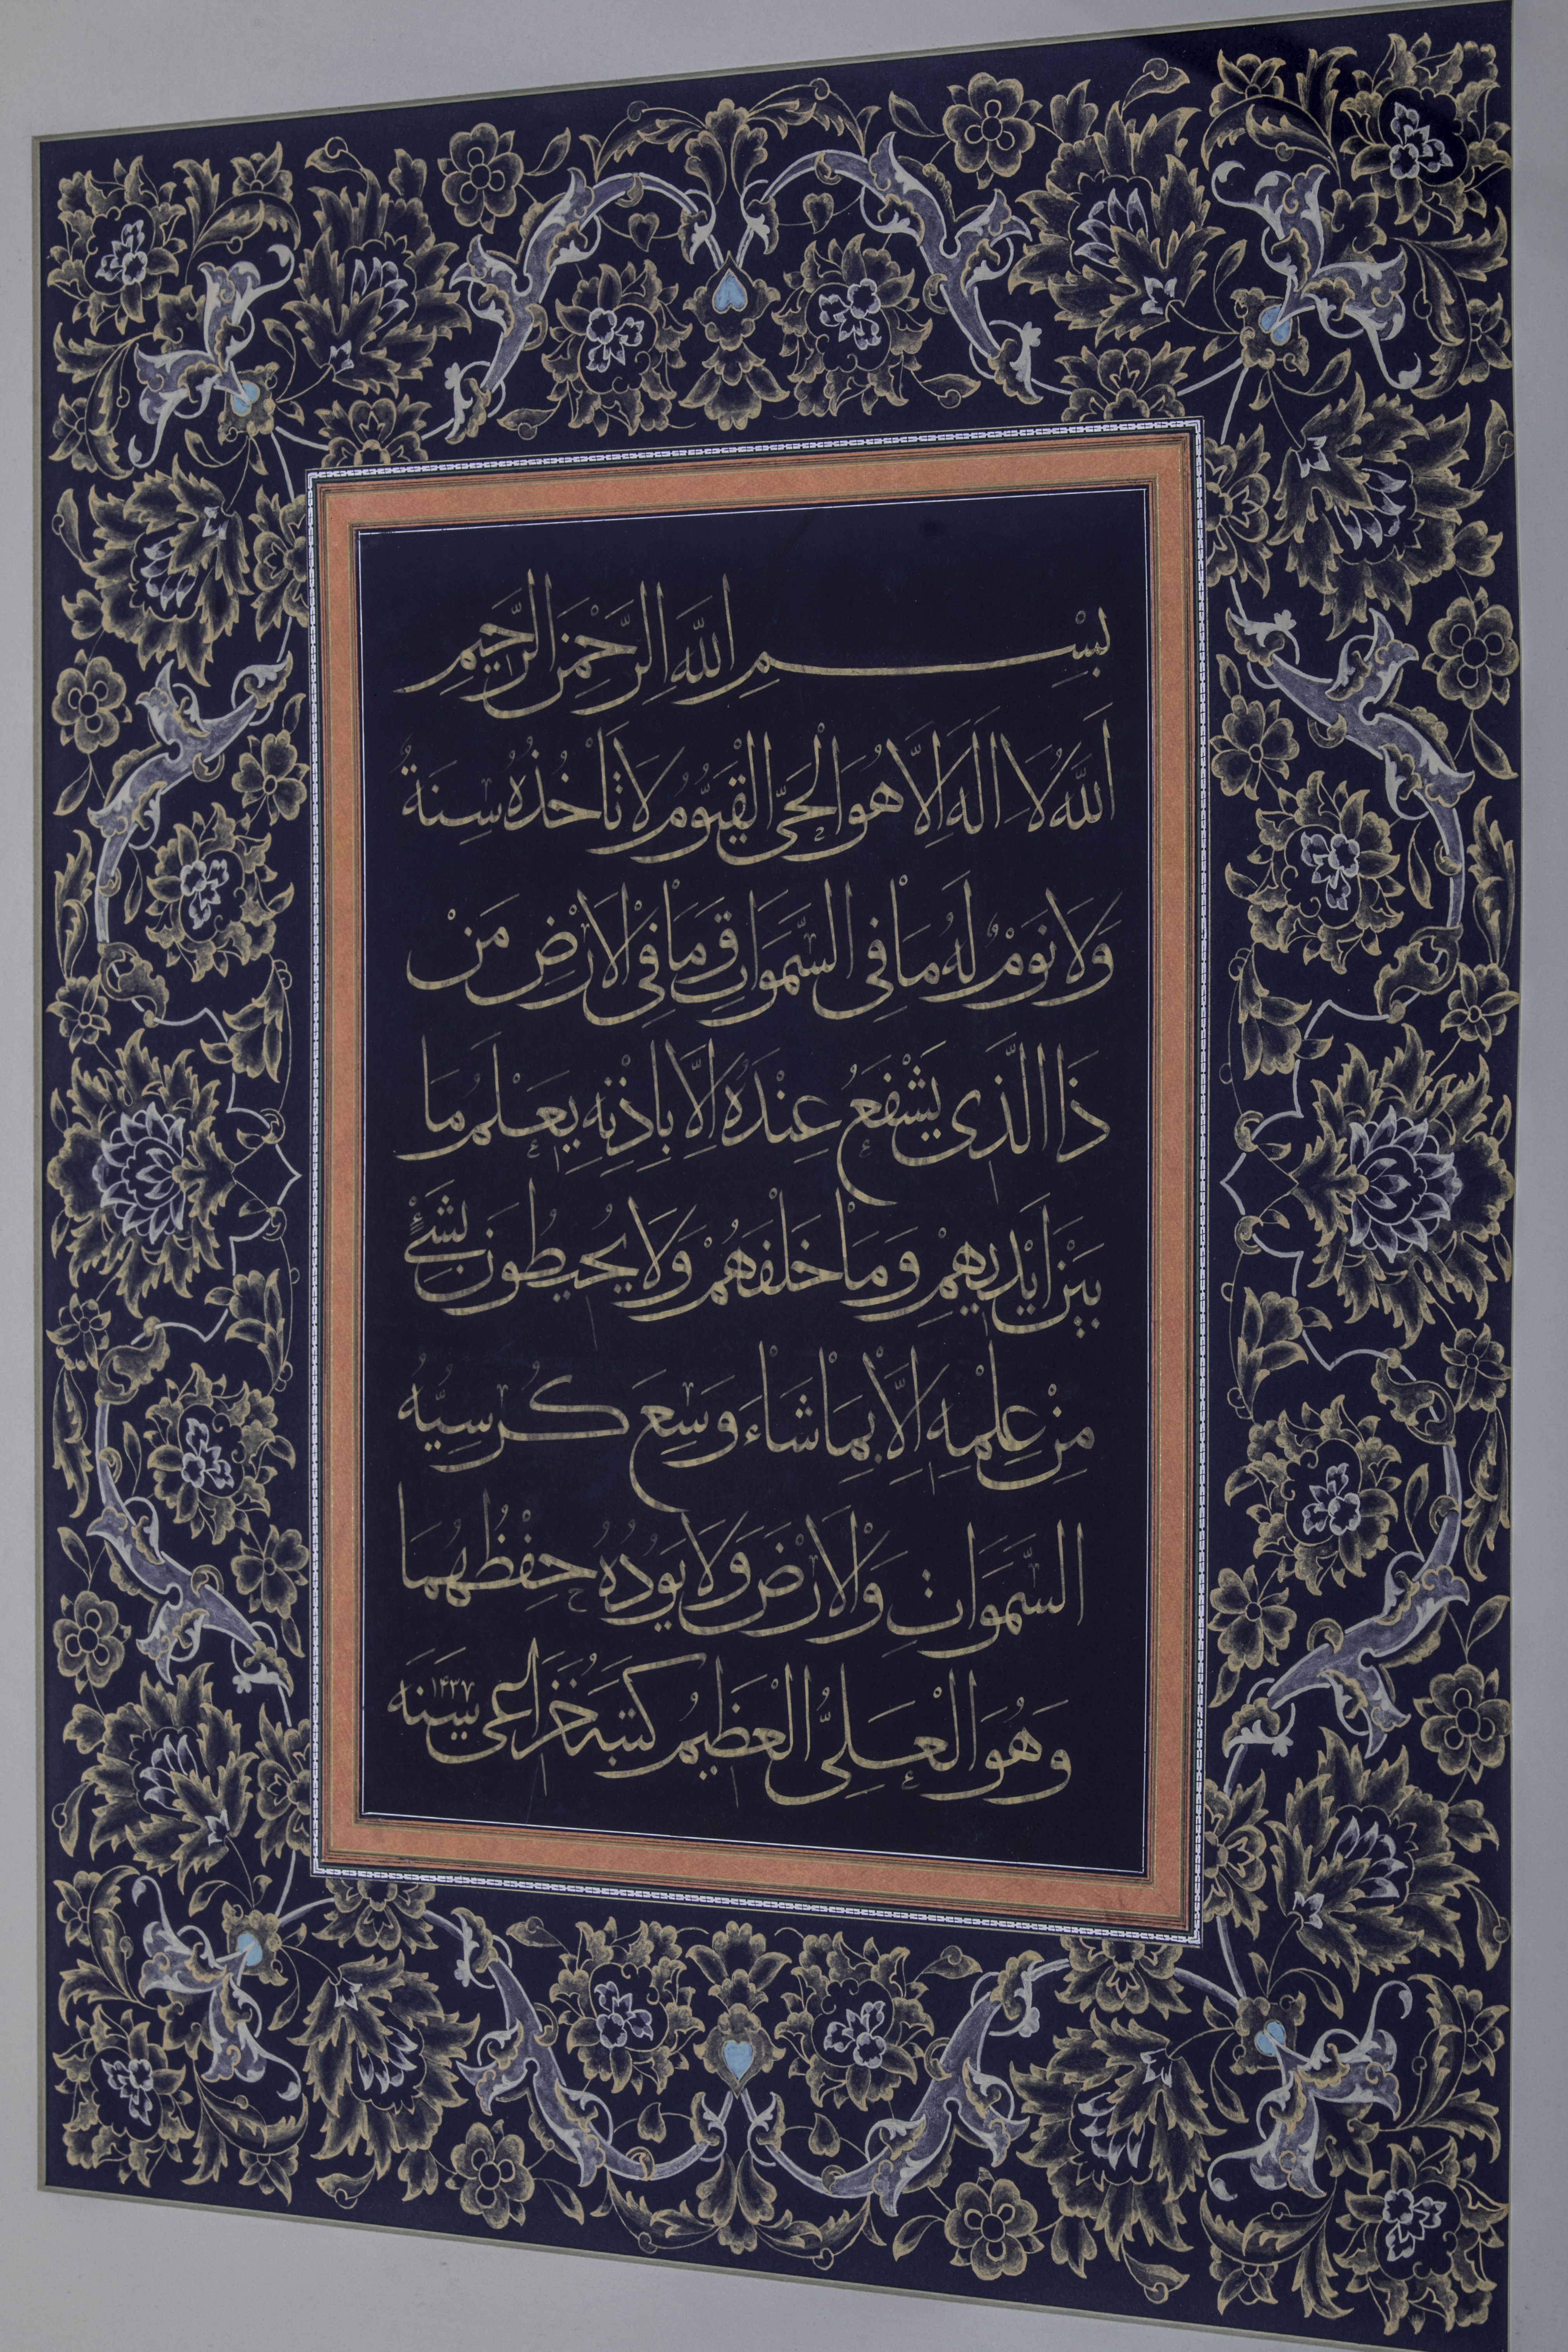 بِسْمِ اللهِ الرَّحْمٰنِ الرَّحِيمِ
اَللهُ لَا اِلٰهَ اِلَّا هُوَ الْحَىُّ الْقَيُّومُ لَا تَاْخُذُهُ سِنَةٌ
وَلَا نَوْمٌ لَهُ مَا فِى السَّمٰوَاتِ وَمَا فِى الْاَرْضِ مَنْ
ذَا الَّذِى يَشْفَعُ عِنْدَهُ اِلَّا بِاِذْنِهِ يَعْلَمُ مَا
بَيْنَ اَيْدِيهِمْ وَمَا خَلْفَهُمْ وَلَا يُحِيطُونَ بِشَىْءٍ
مِنْ عِلْمِهِ اِلَّا بِمَا شَاءَ وَسِعَ كُرْسِيُّهُ
السَّمٰوَاتِ وَالْاَرْضَ وَلَا يَوُدُهُ حِفْظُهُمَا
وَهُوَ الْعَلِىُّ الْعَظِيمُ كَتَبَهُ خُزَاعِى سَنَه ١٤٣٧